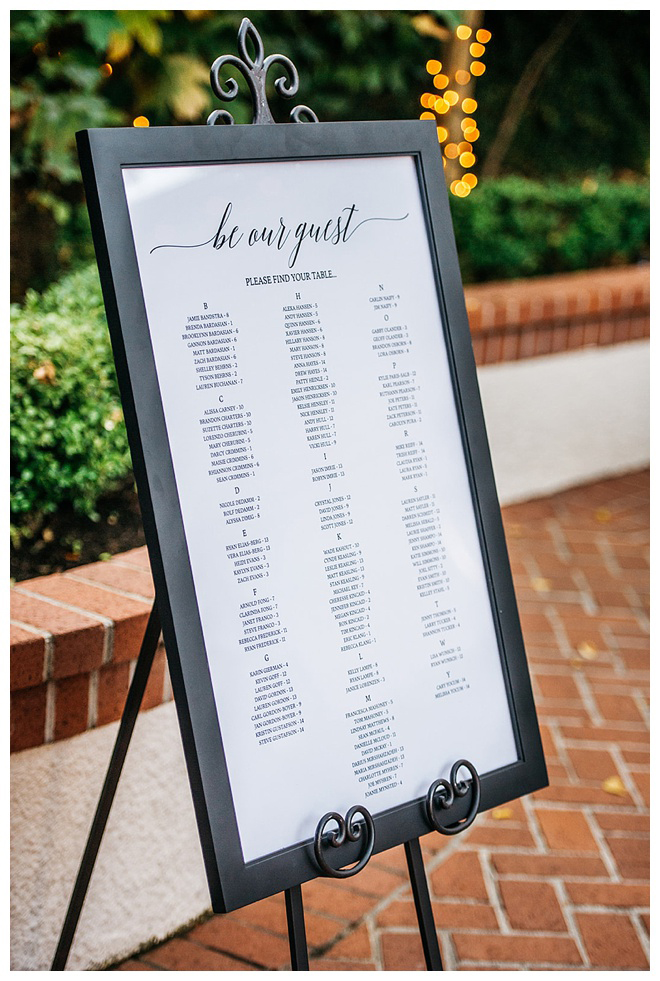 be our guest
PLEASE FIND YOUR TABLE...
B
JAMIE BANDSTRA - 8
BRENDA BARDASIAN - 1
BROOKLYNN BARDASIAN - 6
GANNON BARDASIAN - 6
MATT BARDASIAN - 1
ZACH BARDASIAN - 6
SHELLEY BEHRNS - 2
TYSON BEHRNS - 2
LAUREN BUCHANAN - 7
C
ALISSA CARNEY - 10
BRANDON CHARTERS - 10
SUZETTE CHARTERS - 10
LORENZO CHERUBINI - 5
MARY CHERUBINI - 5
DARCY CRIMMINS - 1
MASSIE CRIMMINS - 6
RHIANNON CRIMMINS - 6
SEAN CRIMMINS - 1
D
NICOLE DEDANDE - 2
ROLF DEDAMM - 2
ALYSSA DIMIG - 8
E
RYAN ELIAS-BERG - 13
VERA ELIAS-BERG - 13
HEIDI EVANS - 3
KAYLYN EVANS - 3
ZACH EVANS - 3
F
ARNOLD FONG - 7
CLARINDA FONG - 7
JANET FRANCO - 3
STEVE FRANCO - 3
REBECCA FREDERICK - 11
RYAN FREDERICK - 11
G
KARIN GIERMAN - 4
KEVIN GOFF - 12
LAUREN GOFF - 12
DAVID GORDON - 13
LAUREN GORDON - 13
CARL GORDON-BOYER - 9
JAN GORDON-BOYER - 9
KRISTIN GUSTAFSON - 14
STEVE GUSTAFSON - 14
H
ALEXA HANSEN - 5
ANDY HANSEN - 5
QUINN HANSEN - 6
XAVIER HANSEN - 6
HILLARY HANSON - 8
MARY HANSON - 8
STEVE HANSON - 8
ANNA HAYES - 14
DREW HAYES - 14
PATTY HEINLE - 2
EMILY HENRICKSEN - 10
JASON HENRICKSEN - 10
KELSIE HENSLEY - 11
NICK HENSLEY - 11
ANDY HULL - 12
HARRY HULL - 7
KAREN HULL - 7
VICKI HULL - 9
I
JASON IMRIE - 13
ROBYN IMRIE - 13
J
CRYSTAL JONES - 12
DAVID JONES - 9
LINDA JONES - 9
SCOTT JONES - 12
K
WADE KASOUT - 10
CYNDE KEASLING - 9
LESLIE KEASLING - 13
MATT KEASLING - 13
STAN KEASLING - 9
MICHAEL KEY - 7
CHERESSE KINCAID - 4
JENNIFER KINCAID - 4
MEGAN KINCAID - 2
RON KINCAID - 2
TIM KINCAID - 4
ERIC KLANG - 1
REBECCA KLANG - 1
L
KELLY LAMPE - 8
RYAN LAMPE - 8
JANICE LORENZEN - 3
M
FRANCESCA MAHONEY - 5
TOM MAHONEY - 5
LINDSAY MATTHEWS - 8
SEAN MCFAUL - 4
DANIELLE MCLOUD - 11
DAVID MCKAY - 1
DARIUS MIRSHAHZADEH - 13
MARIA MIRSHAHZADEH - 13
CHARLOTTE MYHREN - 7
JOE MYHREN - 7
JOANIE MYNSTED - 4
N
CARLIN NAIFY - 9
JIM NAIFY - 9
O
GABBY OLANDER - 2
GEOFF OLANDER - 2
BRANDON OSBORN - 8
LORA OSBORN - 8
P
KYLIE PARIS-SALB - 12
KARL PEARSON - 7
RUTHANN PEARSON - 7
JOE PETERS - 11
KATE PETERS - 11
ZACK PETERSON - 11
CAROLYN PURA - 2
R
MIKE REIFF - 14
TRISH REIFF - 14
CLAUDIA RYAN - 1
LAURA RYAN - 5
MARK RYAN - 1
S
LAUREN SAYLER - 11
MATT SAYLER - 11
DARREN SCHMIDT - 12
MELISSA SERALD - 5
LACHIE SHAFFER - 3
JENNY SHAMPO - 14
KENT SHAMPO - 14
KATIE SIMMONS - 10
WILL SIMMONS - 10
EVAN SMITH - 10
KRISTIN SMITH - 10
T
JENNY THOMSON - 5
LARRY TUCKER - 4
SHANNON TUCKER - 4
W
LISA WUNSCH - 12
RYAN WUNSCH - 12
Y
CARY YOCUM - 14
MELISSA YOCUM - 14